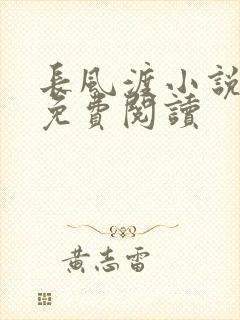 長風渡小說
免費閱讀
黃志雷